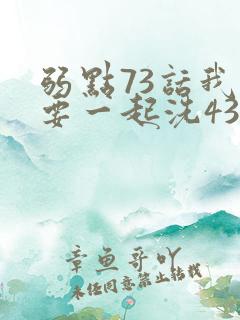 弱點73話我
要一起洗43
章魚哥吖
未经同意禁止转载